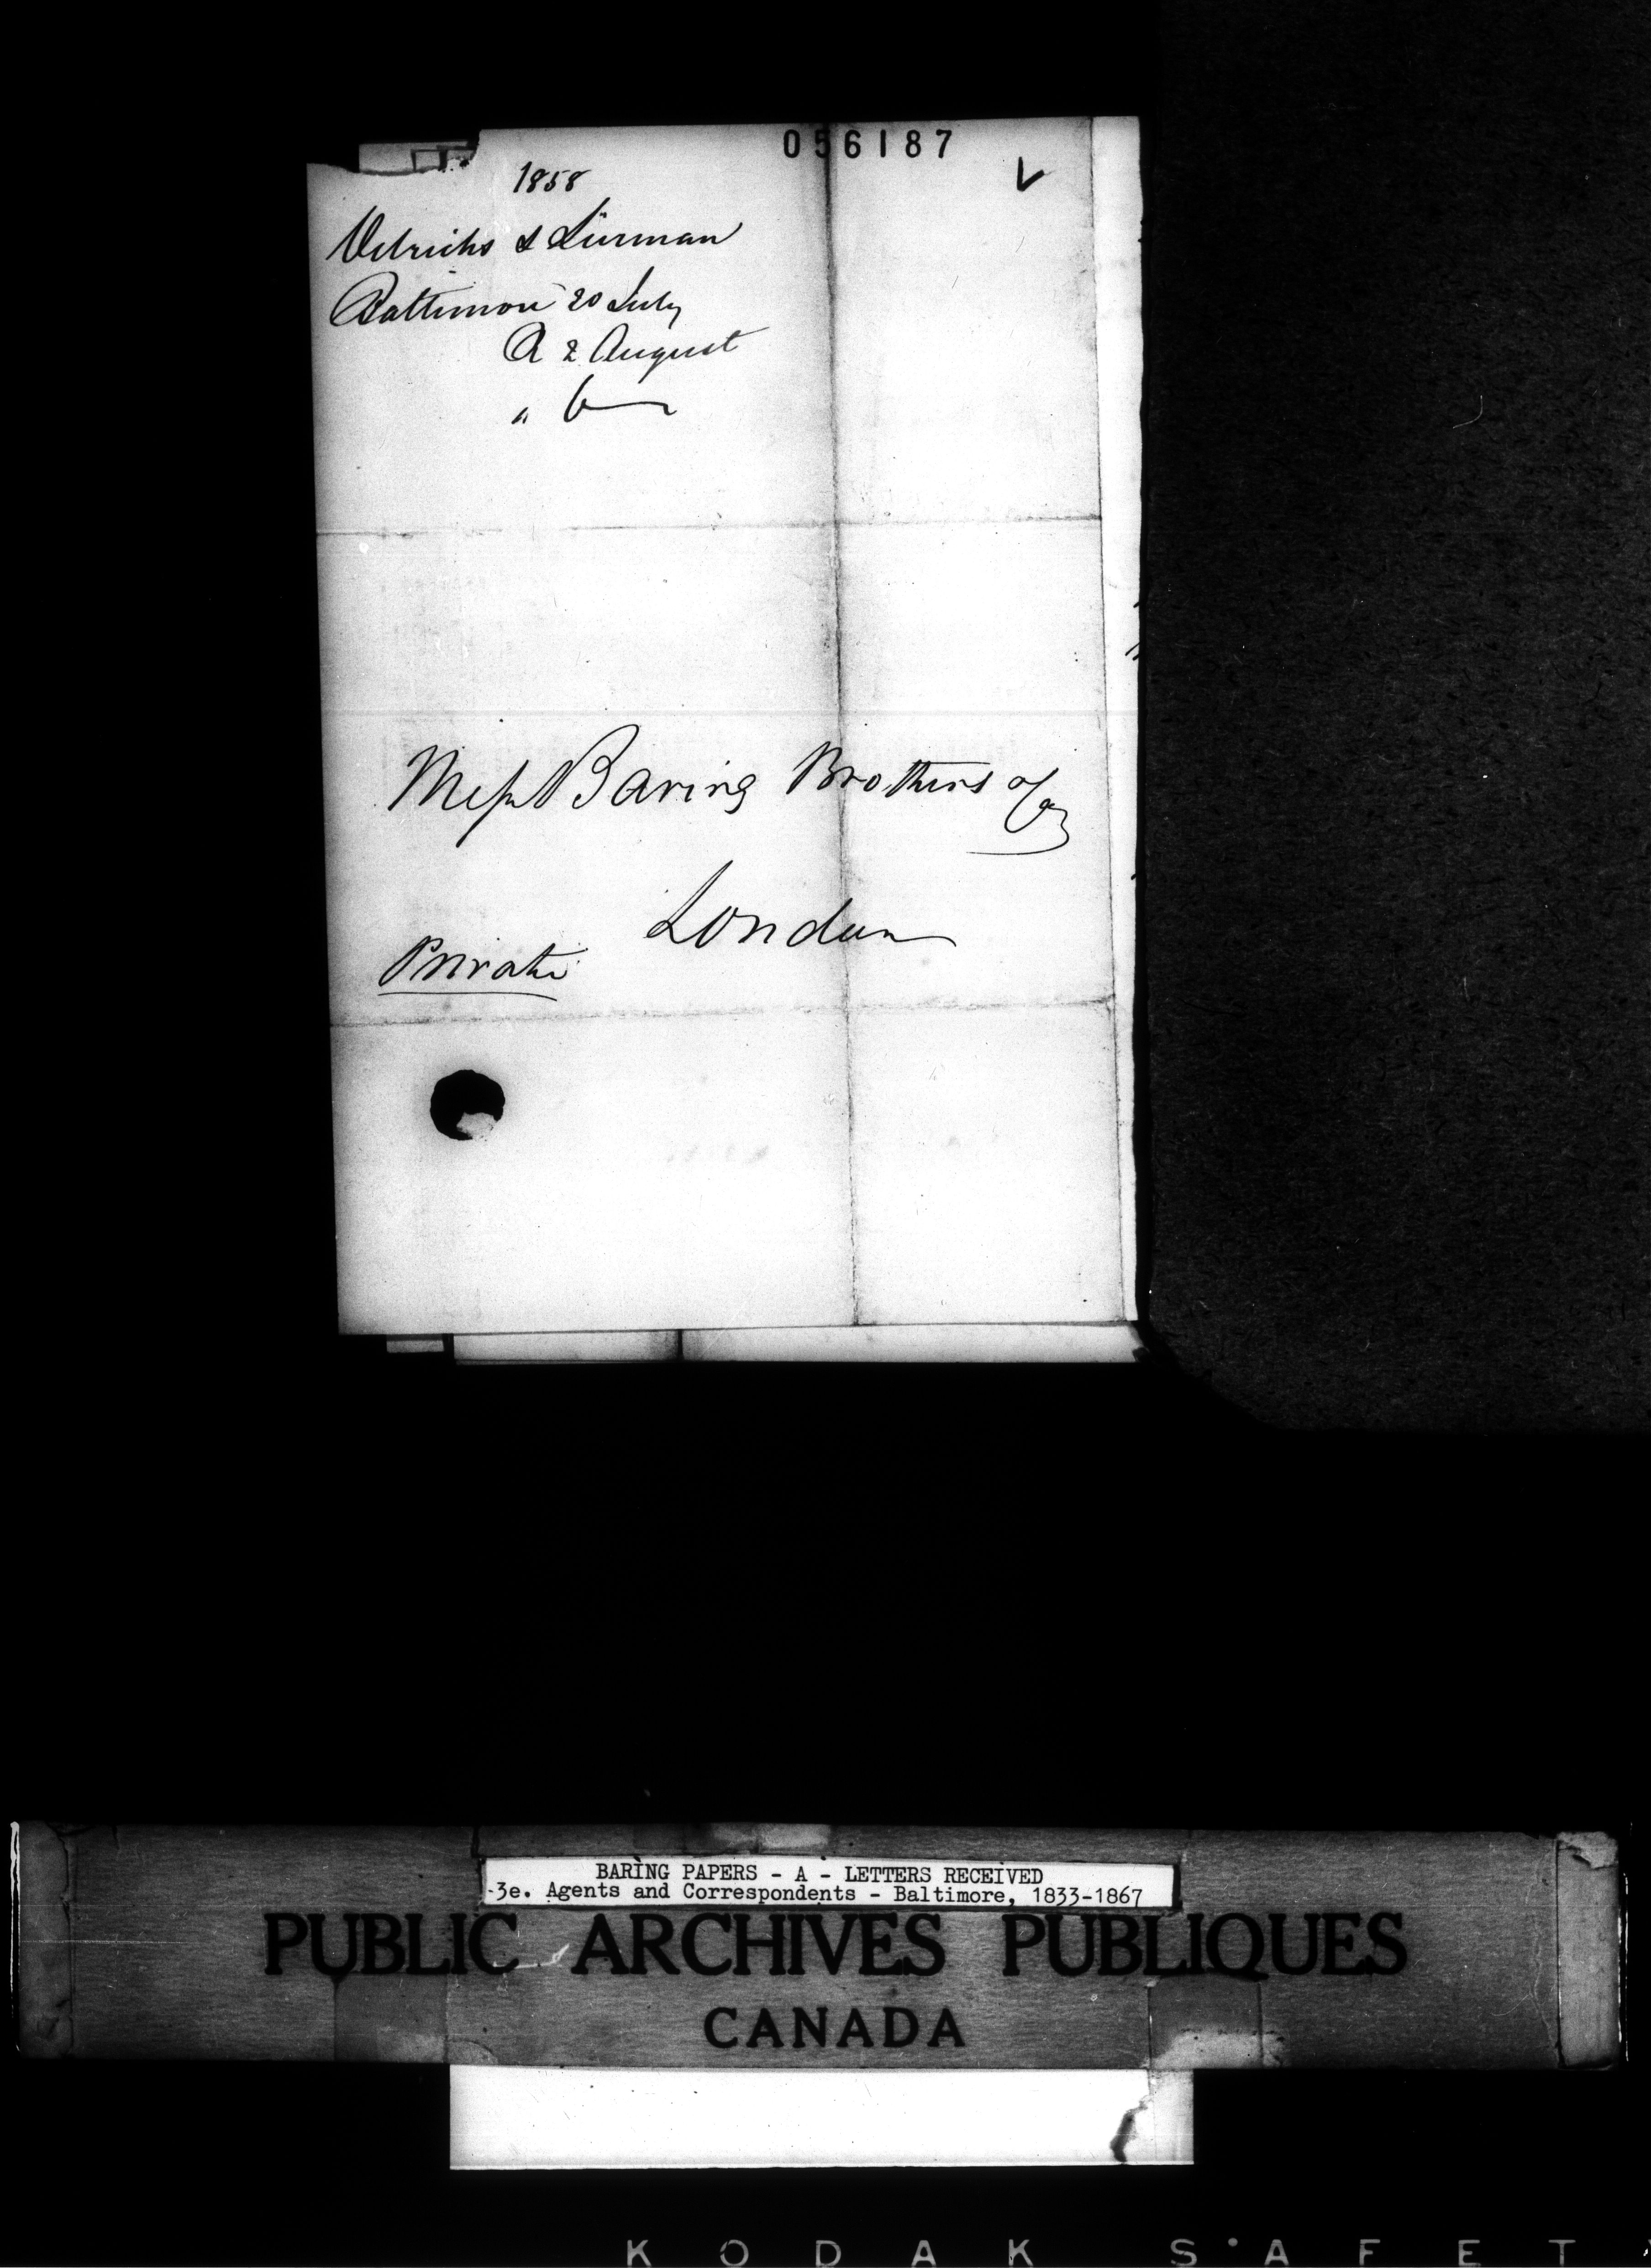 056187
V
1858
Oelrichs & Lürman
Baltimore 20 July
A 2 August
" 6
Messrs Baring Brothers & Co
London
Private
BARING PAPERS - A - LETTERS RECEIVED
-3e. Agents and Correspondents - Baltimore, 1833-1867
PUBLIC ARCHIVES PUBLIQUES
CANADA
KODAK SAFET